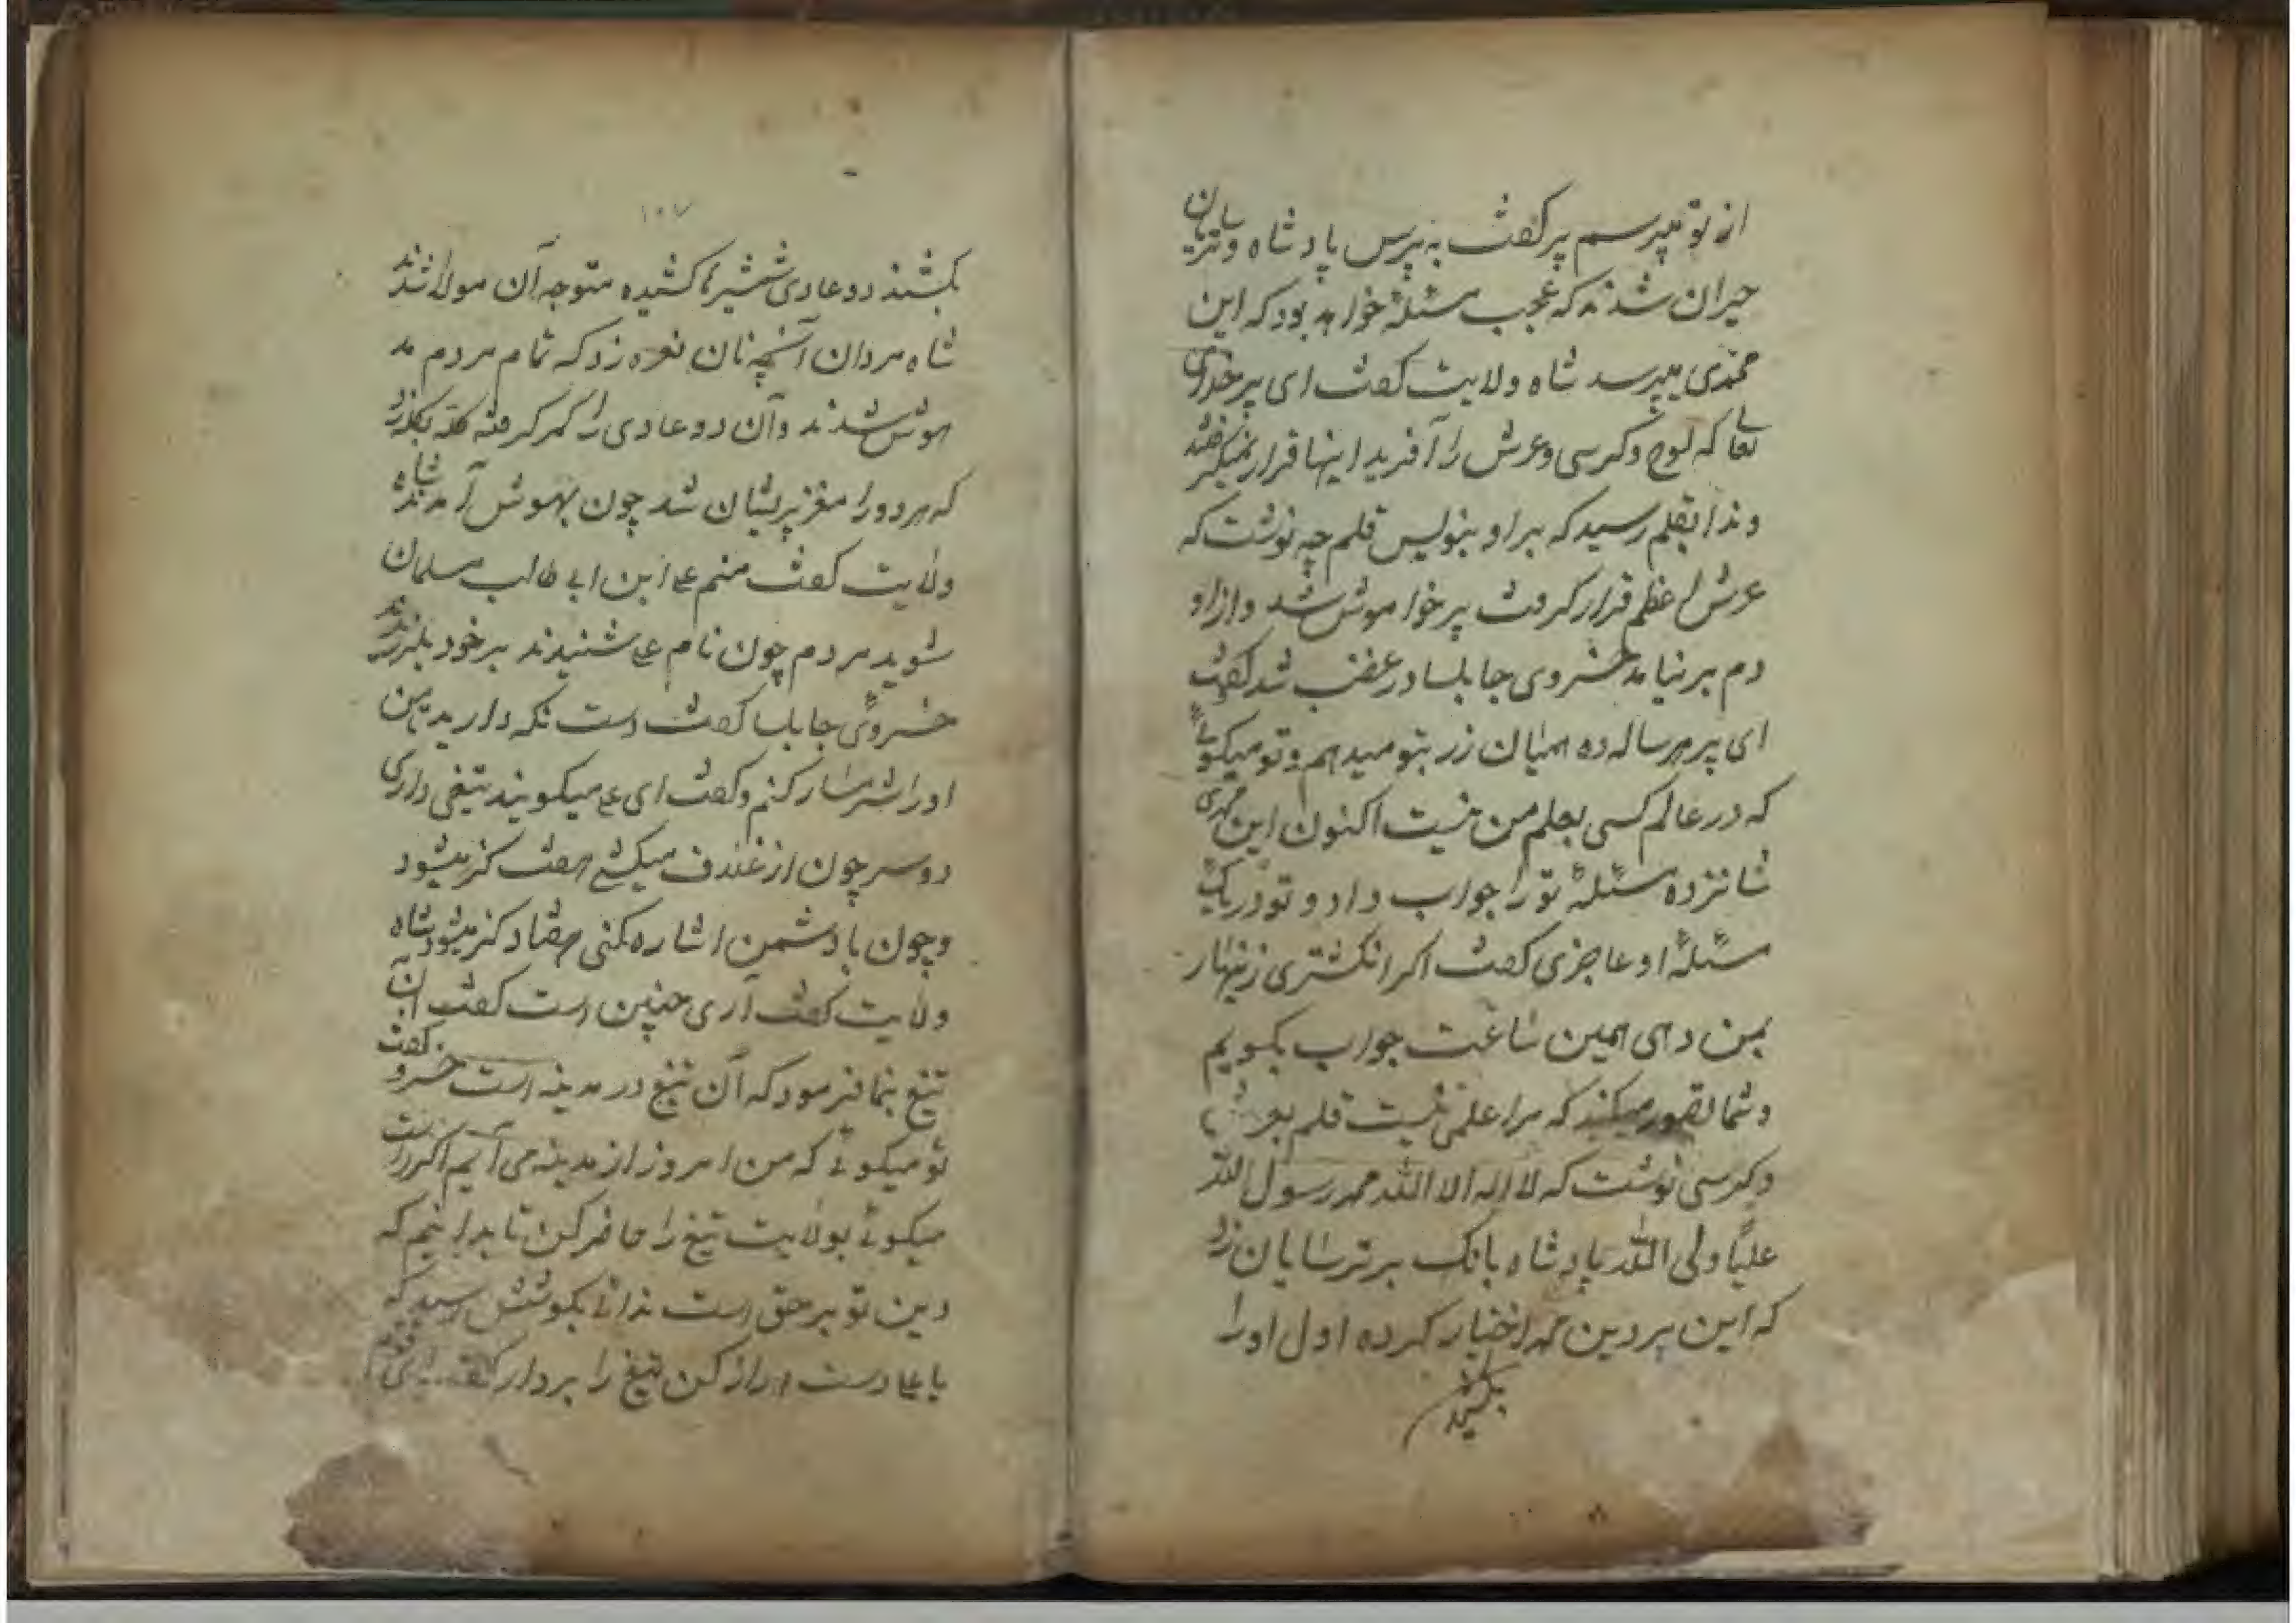 از تو میپرسم پیر گفت به پرس پادشاه و ترسایان
حیران شدند که عجب مسئلهٔ خواهد بود که این
محمدی میپرسد شاه ولایت گفت ای پیر خدای
تعا که لوح و کرسی و عرش را آفرید اینها قرار نمیگرفتند
و ندا بقلم رسید که بر او بنویس قلم چه نوشت که
عرش اعظم قرار گرفت پیر خواموش شد و از او
دم بر نیامد خسروی جابلسا در غضب شد گفت
ای پیر هر ساله ده همیان زر بتو میدهم و تو میگوئے
که در عالم کسی بعلم من نیست اکنون این محمدی
شانزده مسئلهٔ تو را جواب داد و تو در یک
مسئلهٔ او عاجزی گفت اگر انگشتری زنهار
بمن دهی همین ساعت جواب بگویم
و شما تصور میکنید که مرا علمی نیست قلم بعرش
و کرسی نوشت که لا اله الا الله محمد رسول الله
علیًا ولی الله پادشاه بانک بر ترسایان زد
که این پیر دین محمد اختیار کرده اول او را
بکشید
۱۰۷
بکشند دو عادی شمشیرها کشیده متوجه آن مولا شدند
شاه مردان آنچهنان نعره زد که تمام مردم مد
هوش شدند و آن دو عادی را کمر گرفته کله بکله زد
که هر دو را مغز پریشان شد چون بهوش آمدند شاه
ولایت گفت منم علی ابن ابی طالب مسلمان
شوید مردم چون نام علی شنیدند بر خود بلرزیدند
خسروئی جابلسا گفت دست نگه دارید تا من
او را شرمسار کنم و گفت ای علی میگویند تیغی داری
دو سر چون از غلاف میکشی هفت گز میشود
و چون با دشمن اشاره مکنی هفتاد گز میشود شاه
ولایت گفت آری چنین است گفت آن
تیغ بنما فرمود که آن تیغ در مدینه است خسرو گفت
تو میگوئے که من امروز از مدینه می آیم اگر راست
میگوئے بولایت تیغ را حاضر کن تا بدانیم که
دین تو بر حق است ندائے بگوشش رسید که
یا علی دست دراز کن تیغ را بردار